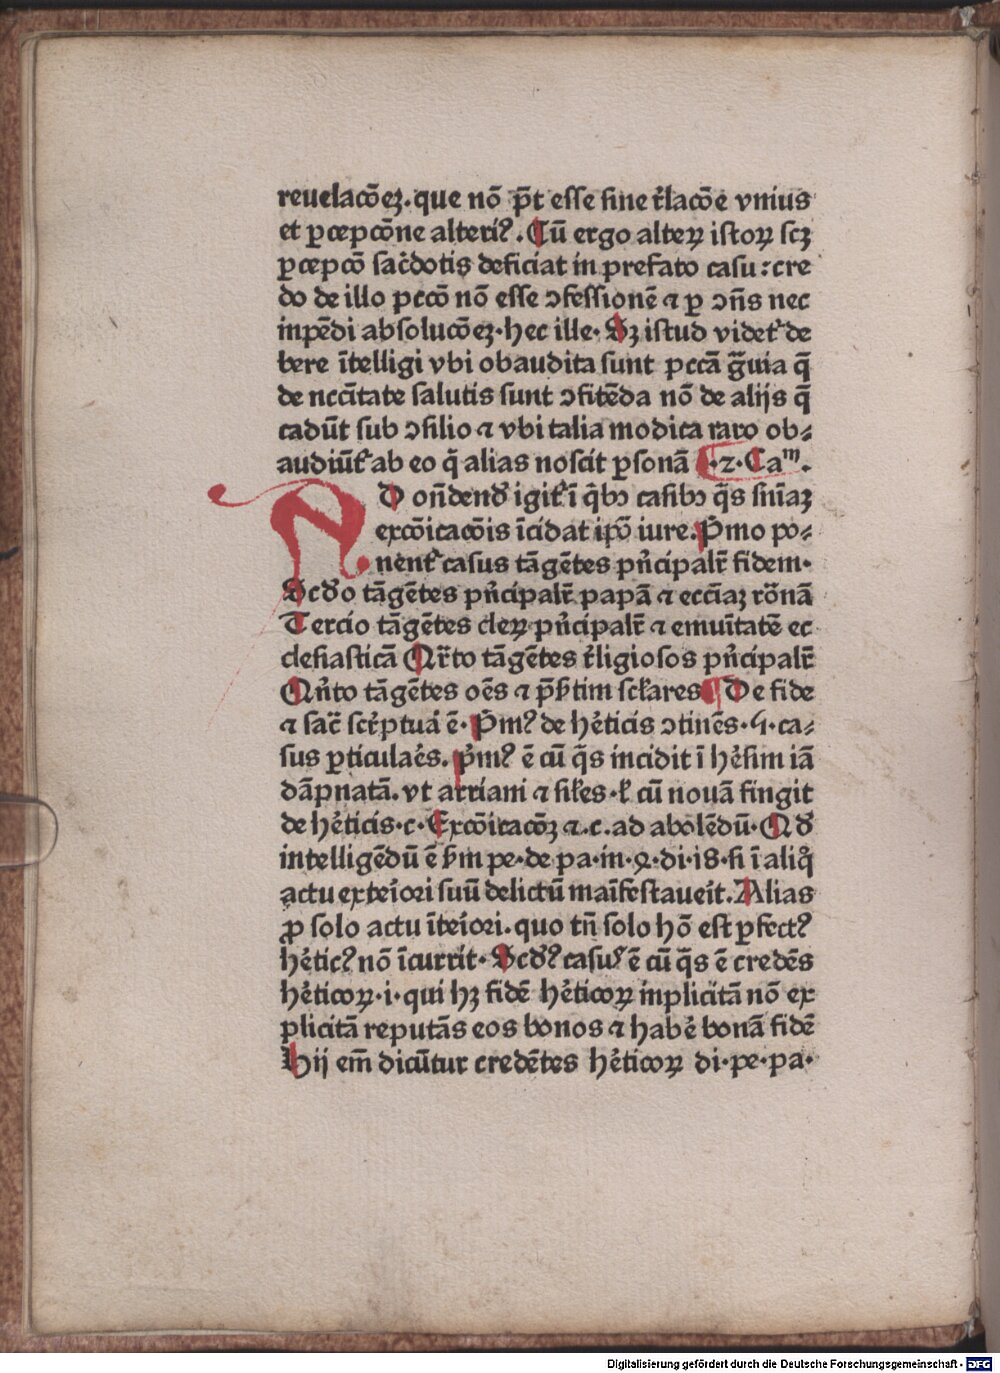 reuelacōeꝫ. que nō p̄t esse sine r̓lacōe vnius
et ꝑcepcōne alteriꝰ. Cū ergo alteꝝ istoꝝ scꝫ
ꝑcepcō sac̓dotis deficiat in prefato casu: cre
do de illo pccō nō esse ↄfessionē ⁊ ꝑ ↄn̄s nec
inpēdi absolucōeꝫ· hec ille· Sꝫ istud videt᷑ de
bere ītelligi vbi obaudita sunt pccā g̃uia q̄
de nccītate salutis sunt ↄfitēda nō de alijs q̄
cadūt sub ↄsilio ⁊ vbi talia modica raro ob⸗
audiūt᷑ ab eo q̄ alias noscit ꝑsonā ·2· Caᵐ.
D on̄dend̓ igit᷑ ī q̓bꝫ casibꝫ q̄s sn̄iaꝫ
excōicacōis īcidat ip̄o iure. P̓mo po⸗
nent᷑ casus tāgētes pn̓cipalr̄ fidem·
Scd̓o tāgētes pn̓cipalr̄ papā ⁊ eccīaꝫ rōnā
Tercio tāgētes cleꝝ pn̓cipalr̄ ⁊ emuītatē ec
clesiasticā Qr̄to tāgētes r̓ligiosos pn̓cipalr̄
Qn̓to tāgētes oēs ⁊ p̄ẜtim sc̄lares De fide
⁊ sac̄ sc̓ptuā ē· P̓mꝰ de he̓ticis ↄtinēs· ca⸗
sus ꝑticulae̓s. p̓mꝰ ē cū q̄s incidit ī he̓sim iā
dāpnatā. vt arriani ⁊ sil̓es· l̓ cū nouā fingit
de he̓ticis· c· Excōicacōꝫ ⁊.c. ad abolēdū· Qd̓
intelligēdū ē ẜm pe· de pa· in· 4· di· 18· si ī aliq̓
actu exteīori suū delictū maīfestaueit. Alias
ꝓ solo actu īteīori. quo tn̄ solo hō est ꝑfectꝰ
he̓ticꝰ nō īcurrit· Scd̓ꝰ casuꝰ ē cū q̄s ē credēs
he̓ticoꝝ· i· qui hꝫ fidē he̓ticoꝝ inplicitā nō ex
plicitā reputās eos bonos ⁊ habē bonā fidē
Hij em̄ dicūtur credētes he̓ticoꝝ di· pe· pa·
Digitalisierung gefördert durch die Deutsche Forschungsgemeinschaft - DFG